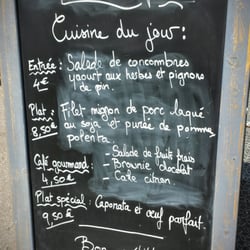 Cuisine du jour :
Entrée : Salade de concombres
4€ yaourt aux herbes et pignons
de pin.
Plat : Filet mignon de porc laqué
8,50€ au soja et purée de pommes
polenta.
Café gourmand : - Salade de fruits frais
4,50€ - Brownie chocolat
- Cake citron.
Plat spécial : Caponata et œuf parfait.
9,50€
Bon